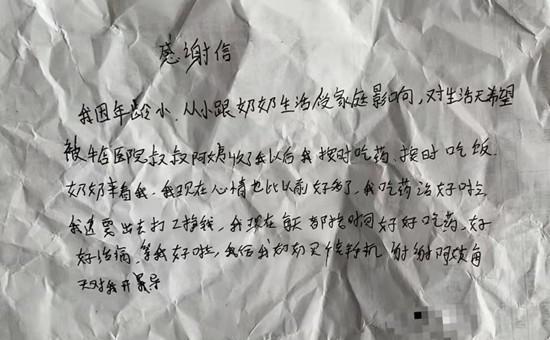 感谢信
我因年龄小、从小跟奶奶生活受家庭影响,对生活无希望
被 医院叔叔阿姨收了我以后我按时吃药、按时吃饭.
奶奶 我.我现在心情也比以前好多了,我吃药治好啦
我还要出去打工挣钱,我现在每天都按时间好好吃药、好
好治病、等我好啦,我给我奶奶买 机 谢谢阿
天对我开导